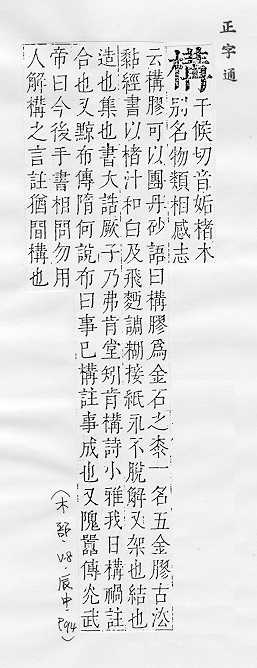 正字通
構
干候切音姤楮木
別名物類相感志
云構膠可以團丹砂語曰構膠爲金石之桼一名五金膠古㳂
黏經書以楮汁和白及飛麪調糊接紙永不脫解又架也結也
造也集也書大誥厥子乃弗肯堂矧肯構詩小雅我日構禍註
合也又黥布傳隋何說布曰事已構註事成也又隗囂傳光武
帝曰今後手書相問勿用
人解構之言註猶間構也
(木部.V8.辰中.P94)